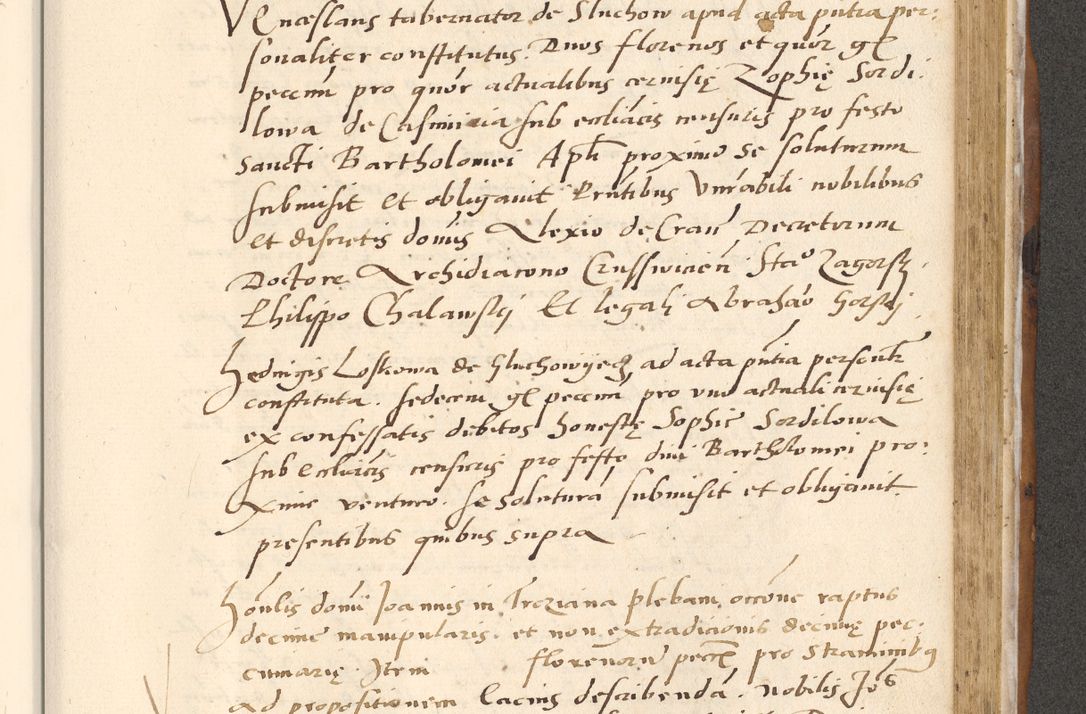 Venceslaus tabernator de Sluchow apud acta pntia per:
sonaliter constitutus. Duos florenos et quor gr
peccun pro quor actualibus cervisię Zophię Sordi:
lowa de Casmiria sub ecclīacis censuris pro festo
Sancti Bartholomei Apli proximo se soluturum
submisit et obligavit Prntibus Vnrabili nobilibus
et discretis domīs Alexio de Crau Decretorum
Doctore Archidiacono Crusswicien Stao Zagorsky
Philippo Chalawsky Et legali Abrahāo Gorsky.
Hedvigis Loskowa de Sluchow ad acta pntia personlr
constituta. Sedecim gr peccun pro uno actuali cervisię
ex confessatis debitos honestę Sophię Sordilowa
sub Eccliacis censuris pro festo divi Bartholomei pro:
xime venturo. se soluturā submisit et obligavit
presentibus quibus supra
Honlis domī Joannis in Troziana Plebani occōne raptus
decime manipularis. et non extradicionis decimę pec:
cuniarię. Item florenorū peccun pro Straminibus
ad propositionem Lacius describendā. Nobilis Jos